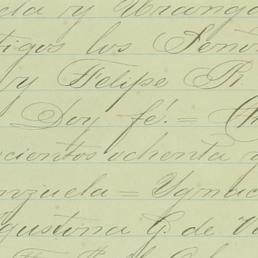 da y Uranga
tigos los Seño
y Felipe R
Doy fé. =
cientos ochenta
nzuela = Ygnac
gustona G. de V